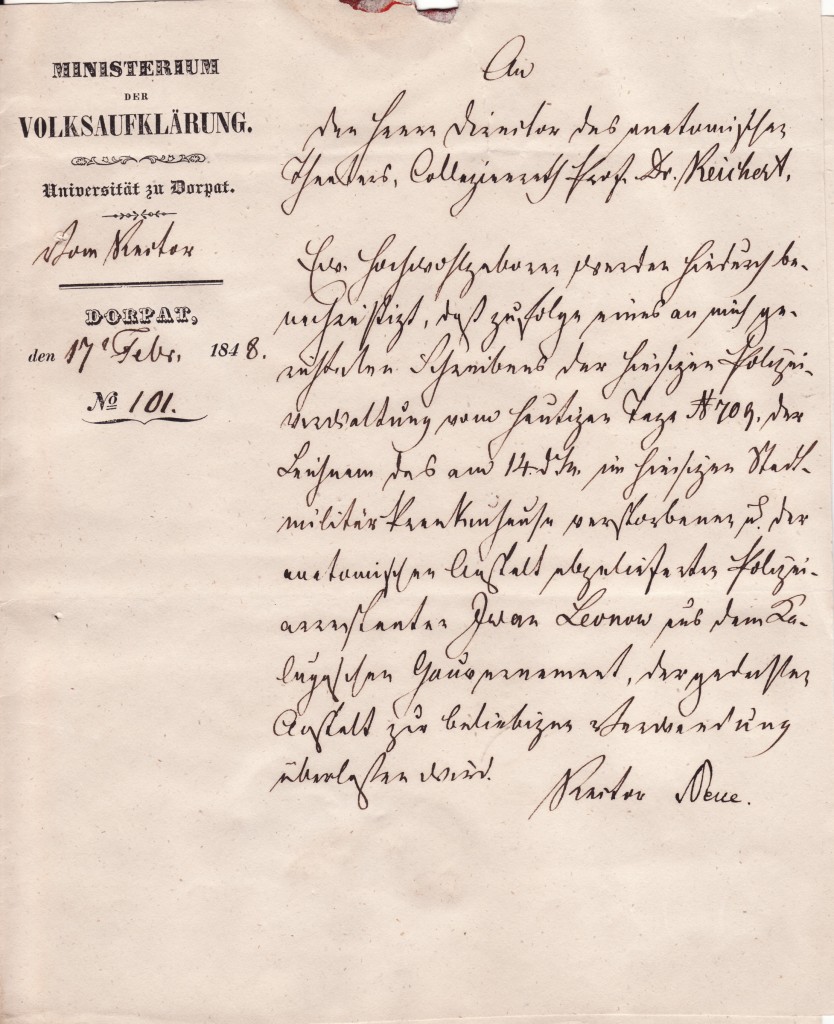 MINISTERIUM
DER
VOLKSAUFKLÄRUNG.
Universität zu Dorpat.
Vom Rector
DORPAT,
den 17t Febr. 1848.
No 101.
An
den Herrn Director des anatomischen
Theaters, Collegienrath Prof. Dr. Reichert.
Ew. Hochwohlgeboren werden hiedurch be-
nachrichtigt, daß zufolge eines an mich ge-
richteten Schreibens der hiesigen Polizei-
verwaltung vom heutigen Tage № 709. der
Leichnam des am 14. d. M. im hiesigen Stadt-
militärkrankenhause verstorbenen u. der
anatomischen Anstalt abgelieferten Polizei-
arrestanten Iwan Leonow aus dem Ka-
lugaschen Gouvernement, der gedachten
Anstalt zur beliebigen Verwendung
überlassen wird.
Rector Neue.